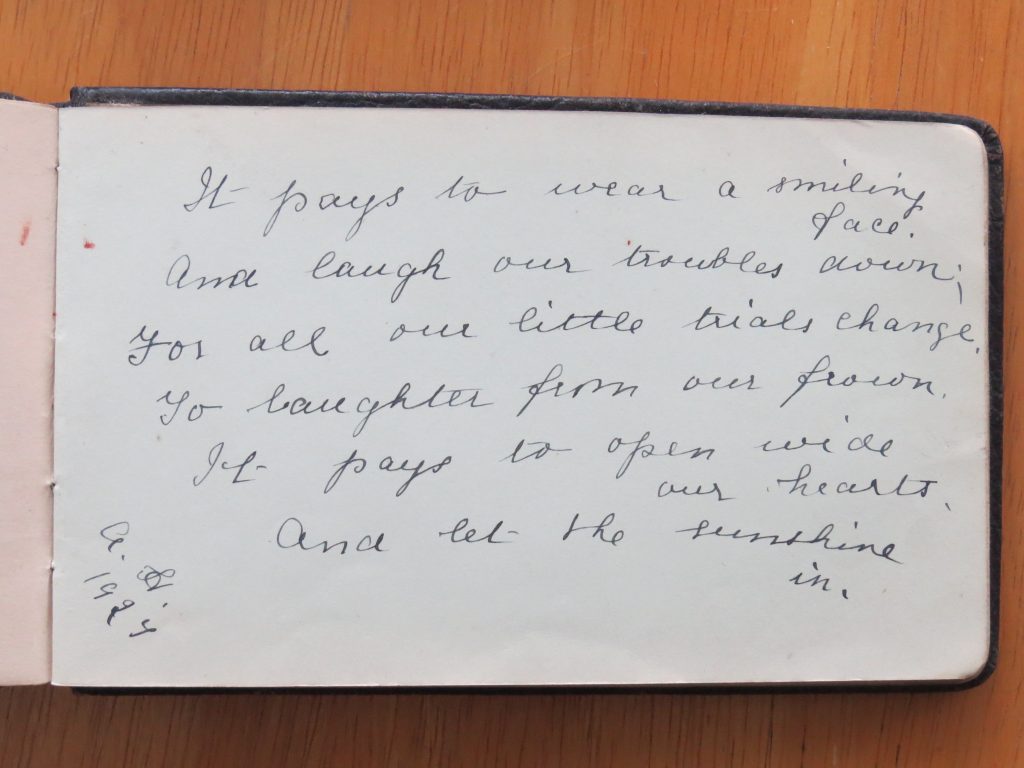 It pays to wear a smiling
face.
And laugh our troubles down;
For all our little trials change.
To laughter from our frown.
It pays to open wide
our hearts,
And let the sunshine
in.
A.